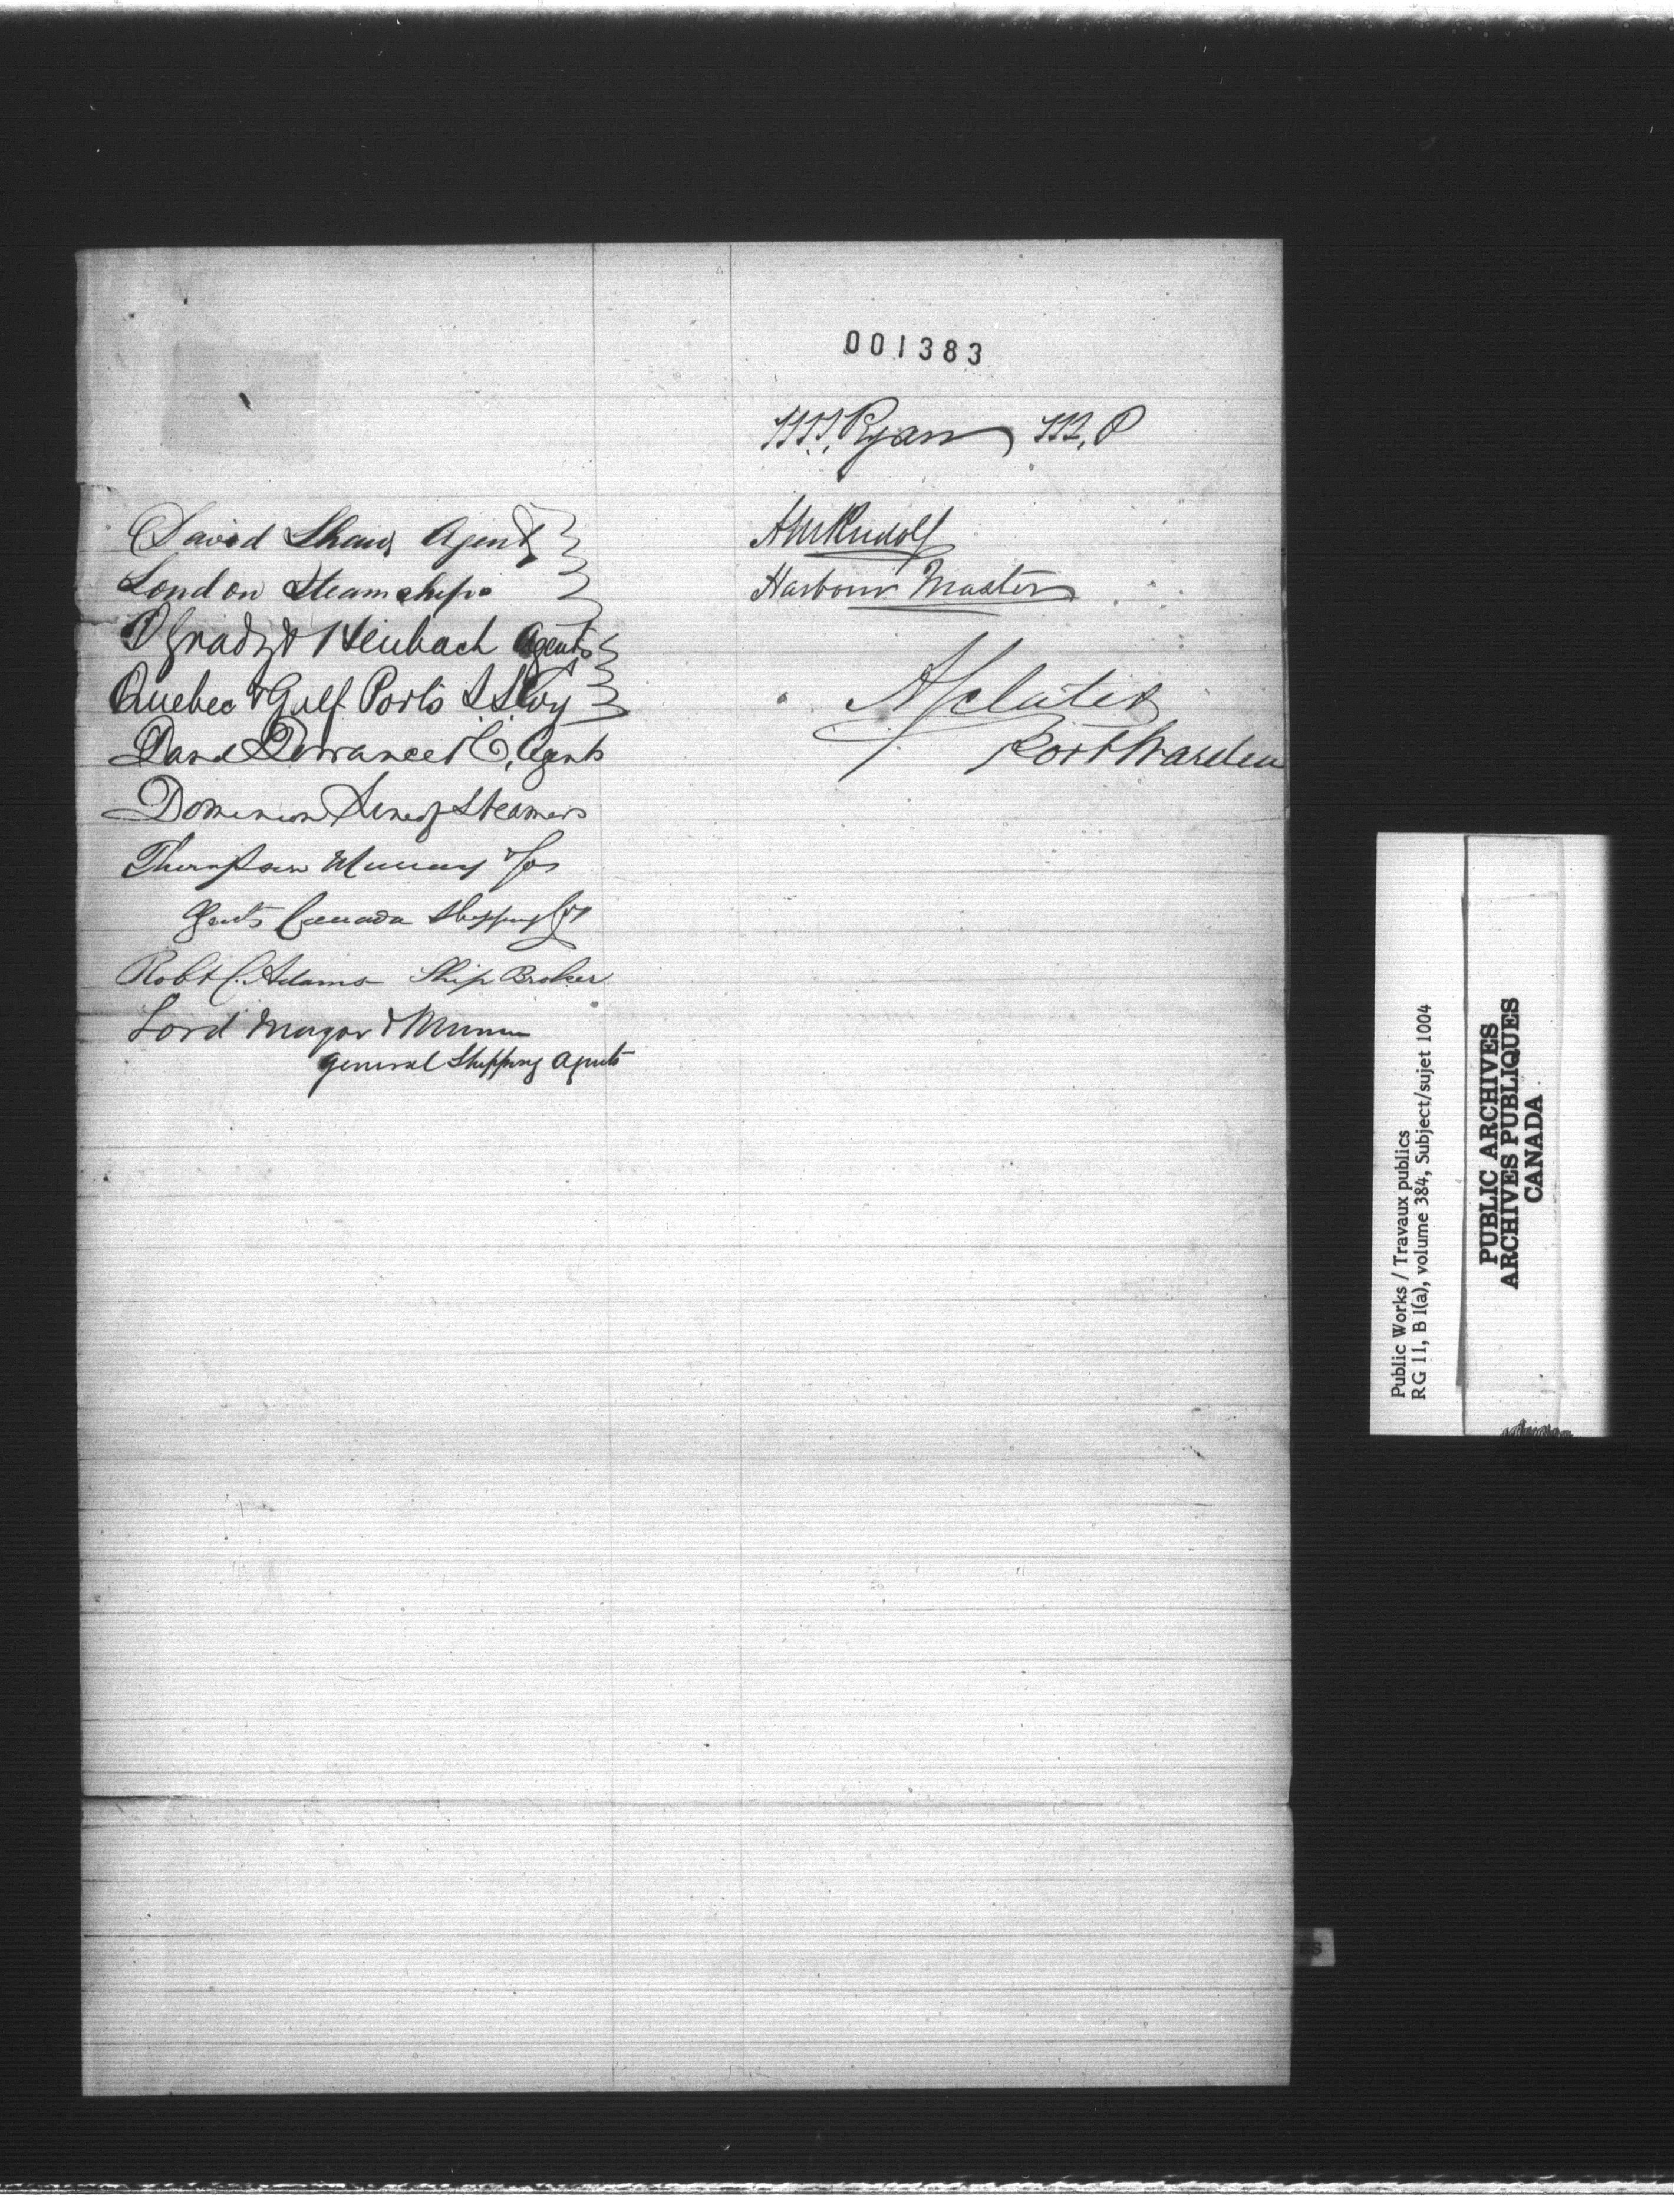 001383
M. P. Ryan M. P
David Shaw Agent
London Steamships
O'Grady & Heubach Agents
Quebec & Gulf Ports S S Coy
David Torrance & Co, Agents
Dominion Line of Steamers
Thompson Murray & Co
Agents Canada Shipping Co
Robt C. Adams Ship Broker
Lord Magor & Munn
General Shipping Agents
A M Rudolf
Harbour Master
Port Warden
Public Works / Travaux publics
RG 11, B 1(a), volume 384, Subject/sujet 1004
PUBLIC ARCHIVES
ARCHIVES PUBLIQUES
CANADA